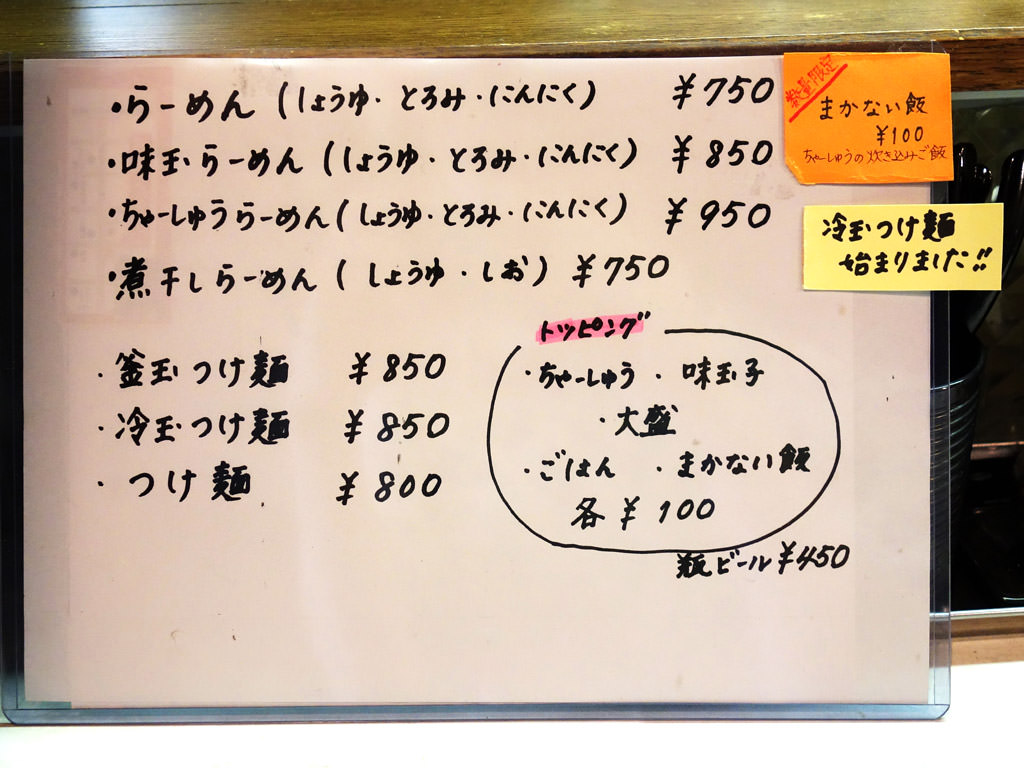 ・らーめん (しょうゆ・とろみ・にんにく) ¥750
・味玉らーめん (しょうゆ・とろみ・にんにく) ¥850
・ちゃーしゅうらーめん (しょうゆ・とろみ・にんにく) ¥950
・煮干しらーめん (しょうゆ・しお) ¥750
・釜玉つけ麺 ¥850
・冷玉つけ麺 ¥850
・つけ麺 ¥800
トッピング
・ちゃーしゅう ・味玉子
・大盛
・ごはん ・まかない飯
各 ¥100
瓶ビール ¥450
数量限定
まかない飯
¥100
ちゃーしゅうの炊き込みご飯
冷玉つけ麺
始まりました!!